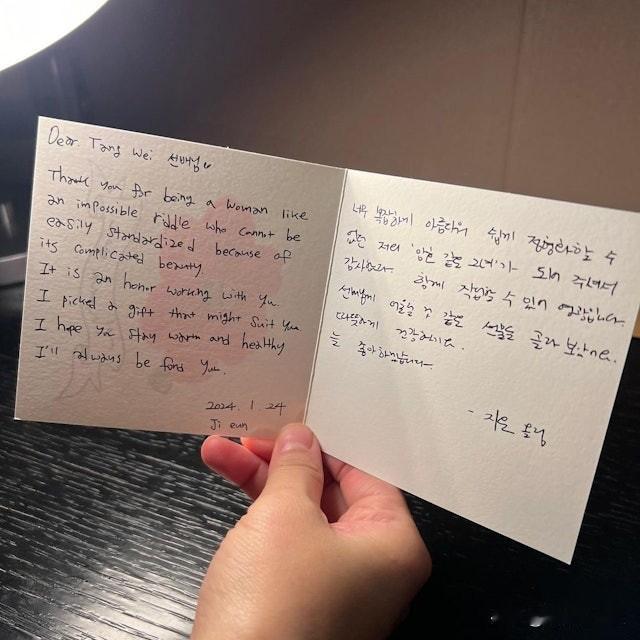 Dear. Tang Wei 선배님
Thank you for being a woman like
an impossible riddle who cannot be
easily standardized because of
its complicated beauty.
It is an honor working with you.
I picked a gift that might suit you
I hope you stay warm and healthy
I'll always be fond you.
2024. 1. 24
Ji eun
너무 복잡하게 아름다워 쉽게 정형화할 수
없는 저희 '암호 같은 그녀'가 되어 주셔서
감사합니다. 함께 작업할 수 있어 영광입니다.
선배님께 어울릴 것 같은 선물을 골라 보았어요.
따뜻하게 건강하세요.
늘 좋아하겠습니다.
- 지은 올림